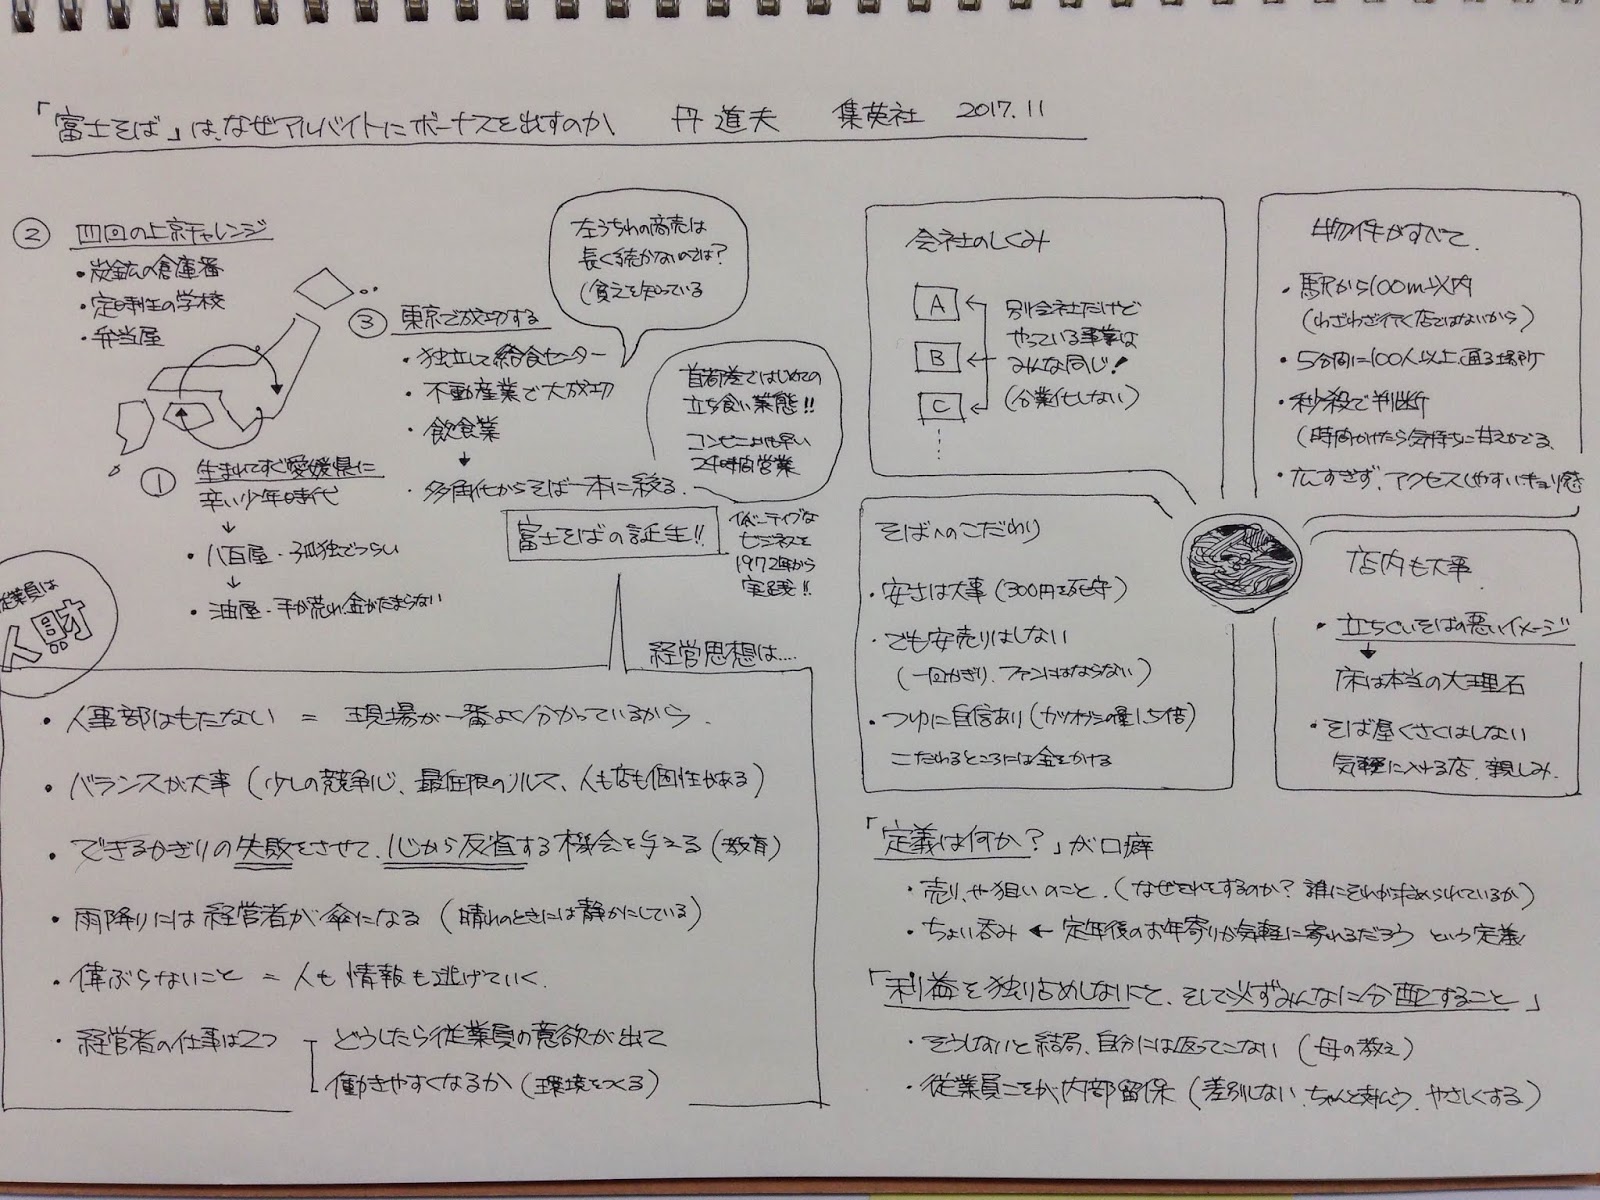 「富士そば」は、なぜアルバイトにボーナスを出すのか、 丹 道夫 集英社 2017.11
② 四回の上京チャレンジ
・炭鉱の倉庫番
・定時性の学校
・弁当屋
③ 東京で成功する
・独立して給食センター
・不動産業で大成功
・飲食業
↓
・多角化からそば一本に絞る。
富士そばの誕生!!
左うちわの商売は
長く続かないのでは?
(貧乏を知っている
首都圏ではじめての
立ち食い業態!!
コンビニよりも早い
24時間営業
イノベーティブな
ビジネスを
1972年から
実践!!
① 生まれてすぐ愛媛県に
辛い少年時代
↓
・八百屋・孤独でつらい
↓
・油屋・手が荒れ、金がたまらない
従業員は
人財
経営思想は....
・人事部はもたない = 現場が一番よく分かっているから.
・バランスが大事(少しの競争心、最低限のルール、人も店も個性がある)
・できるかぎりの失敗をさせて、心から反省する機会を与える(教育)
・雨降りには経営者が傘になる(晴れのときには静かにしている)
・偉ぶらないこと = 人も情報も逃げていく.
・経営者の仕事は2つ
どうしたら従業員の意欲が出て
働きやすくなるか(環境をつくる)
会社のしくみ
A
B
C
別会社だけど
やっている事業は
みんな同じ!
(分業化しない)
物件がすべて.
・駅から100m以内
(わざわざ行く店ではないから)
・5分間に100人以上通る場所
・秒殺で判断
(時間かけたら気持ちに甘えがでる.
・広すぎず、アクセスしやすいキョリ感
そばへのこだわり
・安さは大事(300円を死守)
・でも安売りはしない
(一回かぎり、ファンにはならない)
・つゆに自信あり(カツオブシの量1.5倍)
こだわるところには金をかける
店内も大事
・立ちぐいそばの悪いイメージ
↓
床は本当の大理石
・そば屋くさくはしない
気軽に入れる店、親しみ.
「定義は何か?」が口癖
・売り、や狙いのこと.(なぜそれをするのか?誰にそれが求められているか)
・ちょい呑み ← 定年後のお年寄りが気軽に寄れるだろう という定義
「利益を独り占めしないこと、そして必ずみんなに分配すること」
・そうしないと結局、自分には返ってこない(母の教え)
・従業員こそが内部留保(差別しない、ちゃんと対払う、やさしくする)